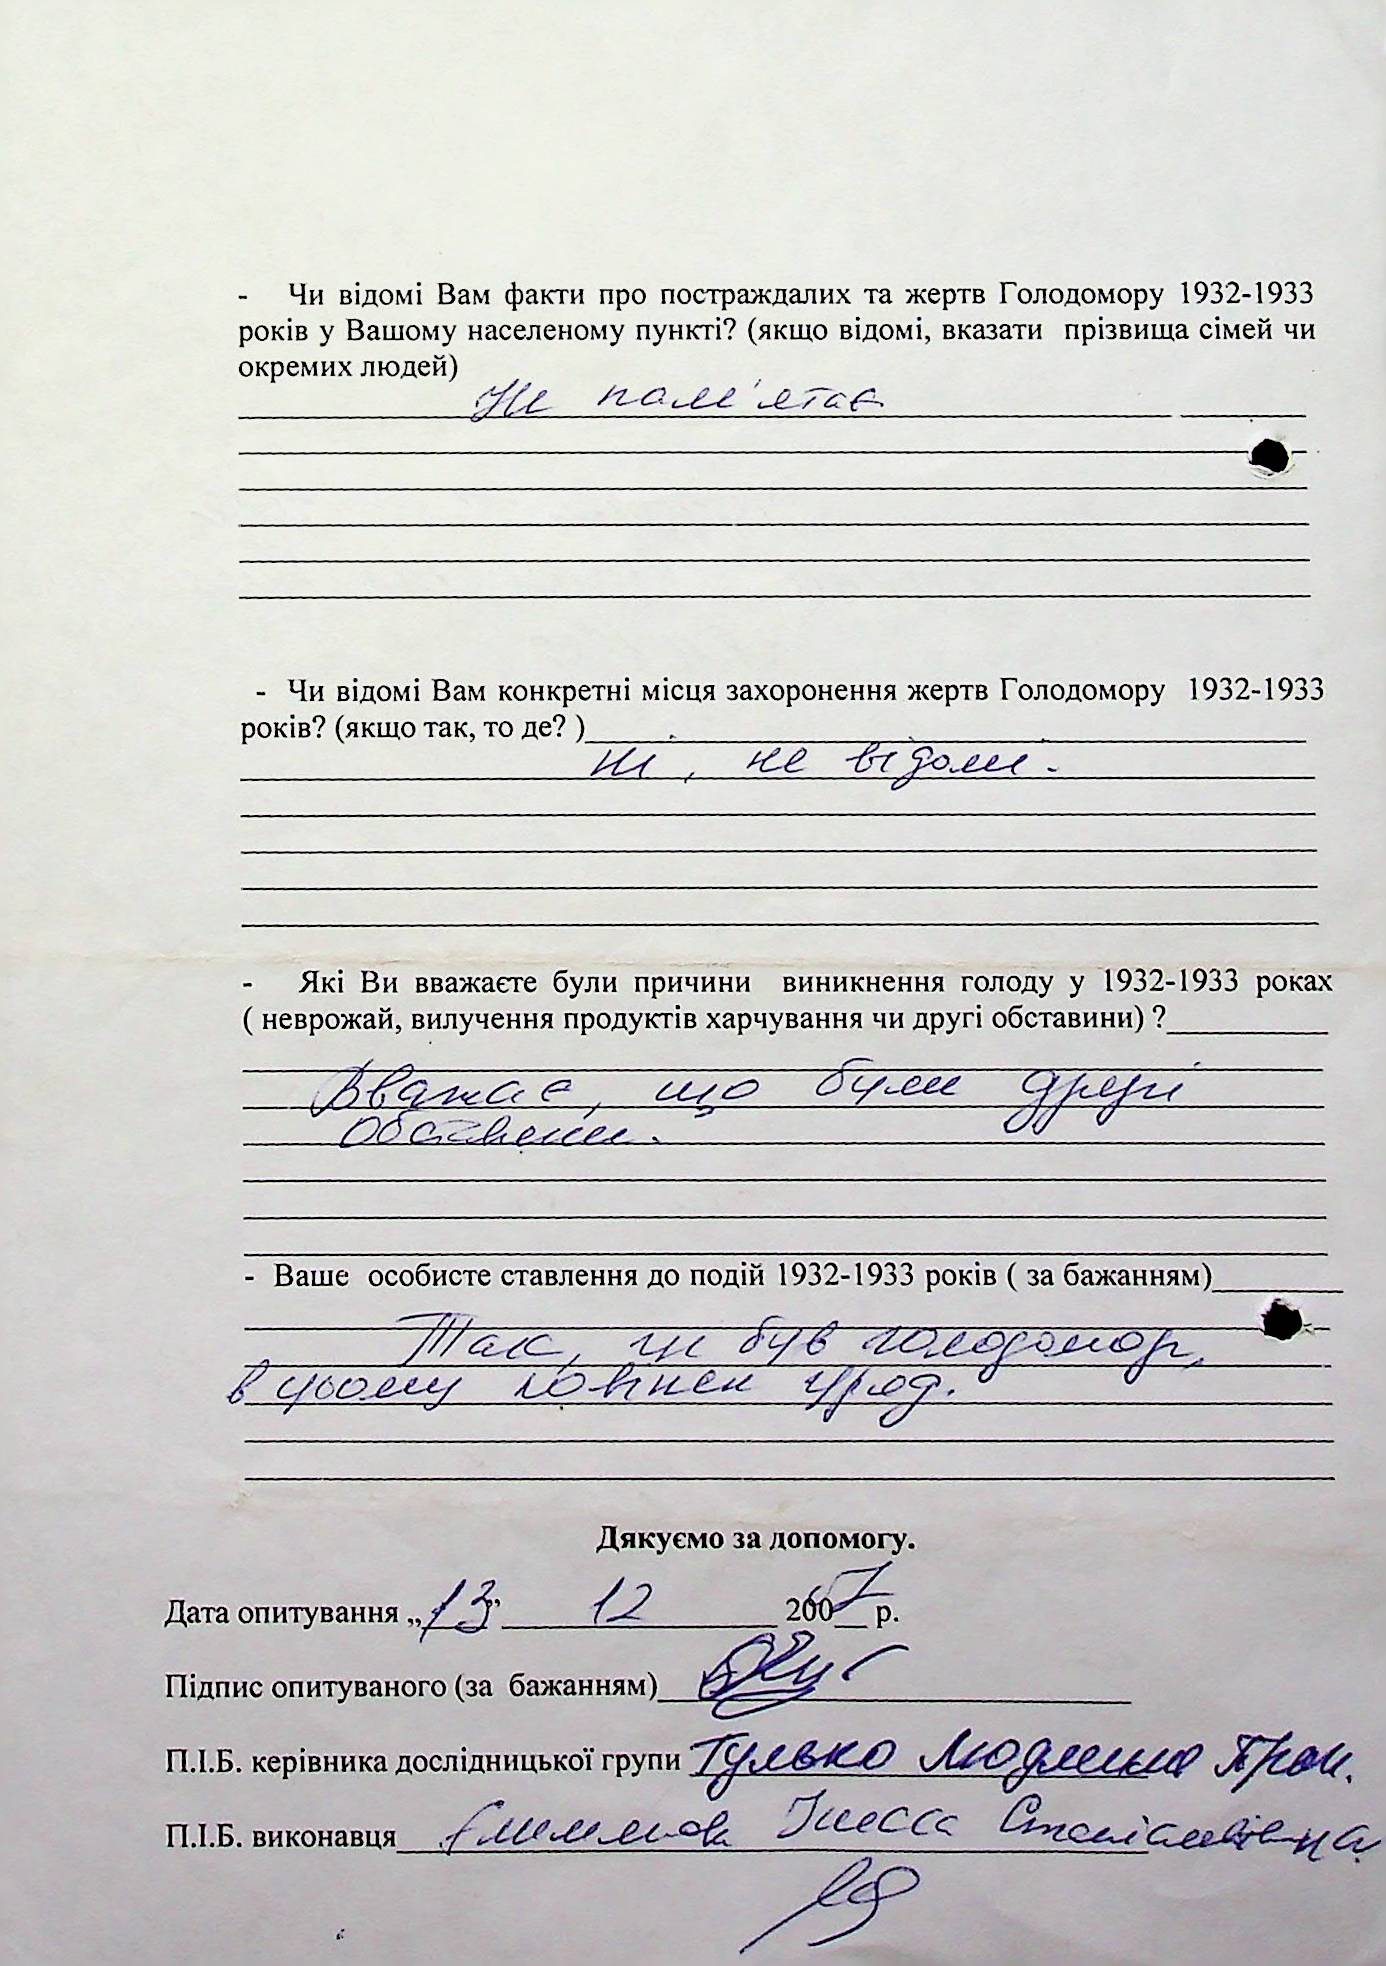 - Чи відомі Вам факти про постраждалих та жертв Голодомору 1932-1933
років у Вашому населеному пункті? (якщо відомі, вказати прізвища сімей чи
окремих людей)
Не пам'ятає
- Чи відомі Вам конкретні місця захоронення жертв Голодомору 1932-1933
років? (якщо так, то де? )
Ні, не відомі.
- Які Ви вважаєте були причини виникнення голоду у 1932-1933 роках
( неврожай, вилучення продуктів харчування чи другі обставини) ?
Вважає, що були другі
обставини.
- Ваше особисте ставлення до подій 1932-1933 років ( за бажанням)
Так, це був голодомор,
в цьому повінен уряд.
Дякуємо за допомогу.
Дата опитування „13” 12 2007 р.
Підпис опитуваного (за бажанням)
П.І.Б. керівника дослідницької групи Гулько Людмила
П.І.Б. виконавця Інесса Станіславівна